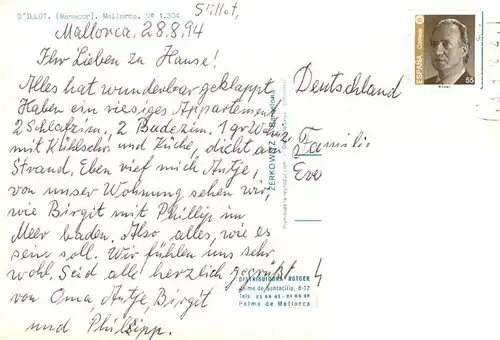 S'ILLOT. (Manacor). Mallorca. Nº 1.304
S'illot,
Mallorca, 28.8.94
Ihr Lieben zu Hause!
Alles hat wunderbar geklappt
Haben ein riesiges Appartement
2 Schlafzim., 2 Badezim, 1 gr. Wohnz
mit Kühlschr und Küche, dicht am
Strand. Eben rief mich Antje,
von unser Wohnung sehen wir,
wie Birgit mit Phillip im
Meer baden. Also alles, wie es
sein soll. Wir fühlen uns sehr
wohl. Seid alle herzlich gegrüßt
von Oma, Antje, Birgit
und Philipp.
ESPAÑA Correos
55
Deutschland
Familie
Eve
ZERKOWITZ
DISTRIBUIDORA ROTGER
Jaime de Santacilia, 8-12
Palma de Mallorca